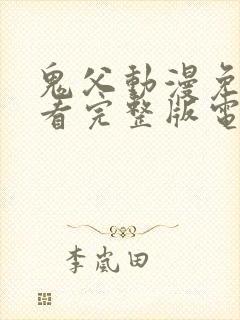 鬼父動漫免
看完整版電
李嵐田